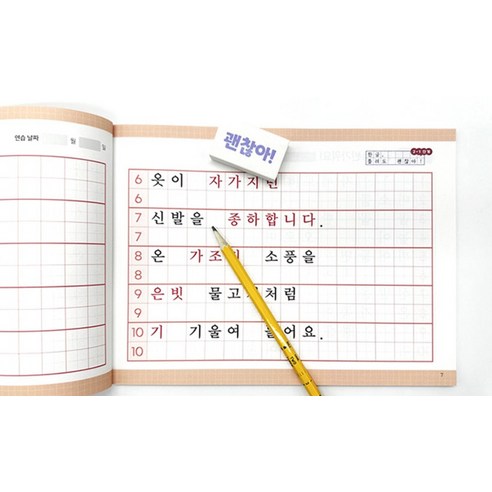 연습 날짜 월 일
괜찮아!
한글,
틀려도 괜찮아!
6 옷이 자가지면
6
7 신발을 종하합니다.
7
8 온 가조이 소풍을
8
9 은빗 물고기처럼
9
10 기 기울여 들어요.
10
7